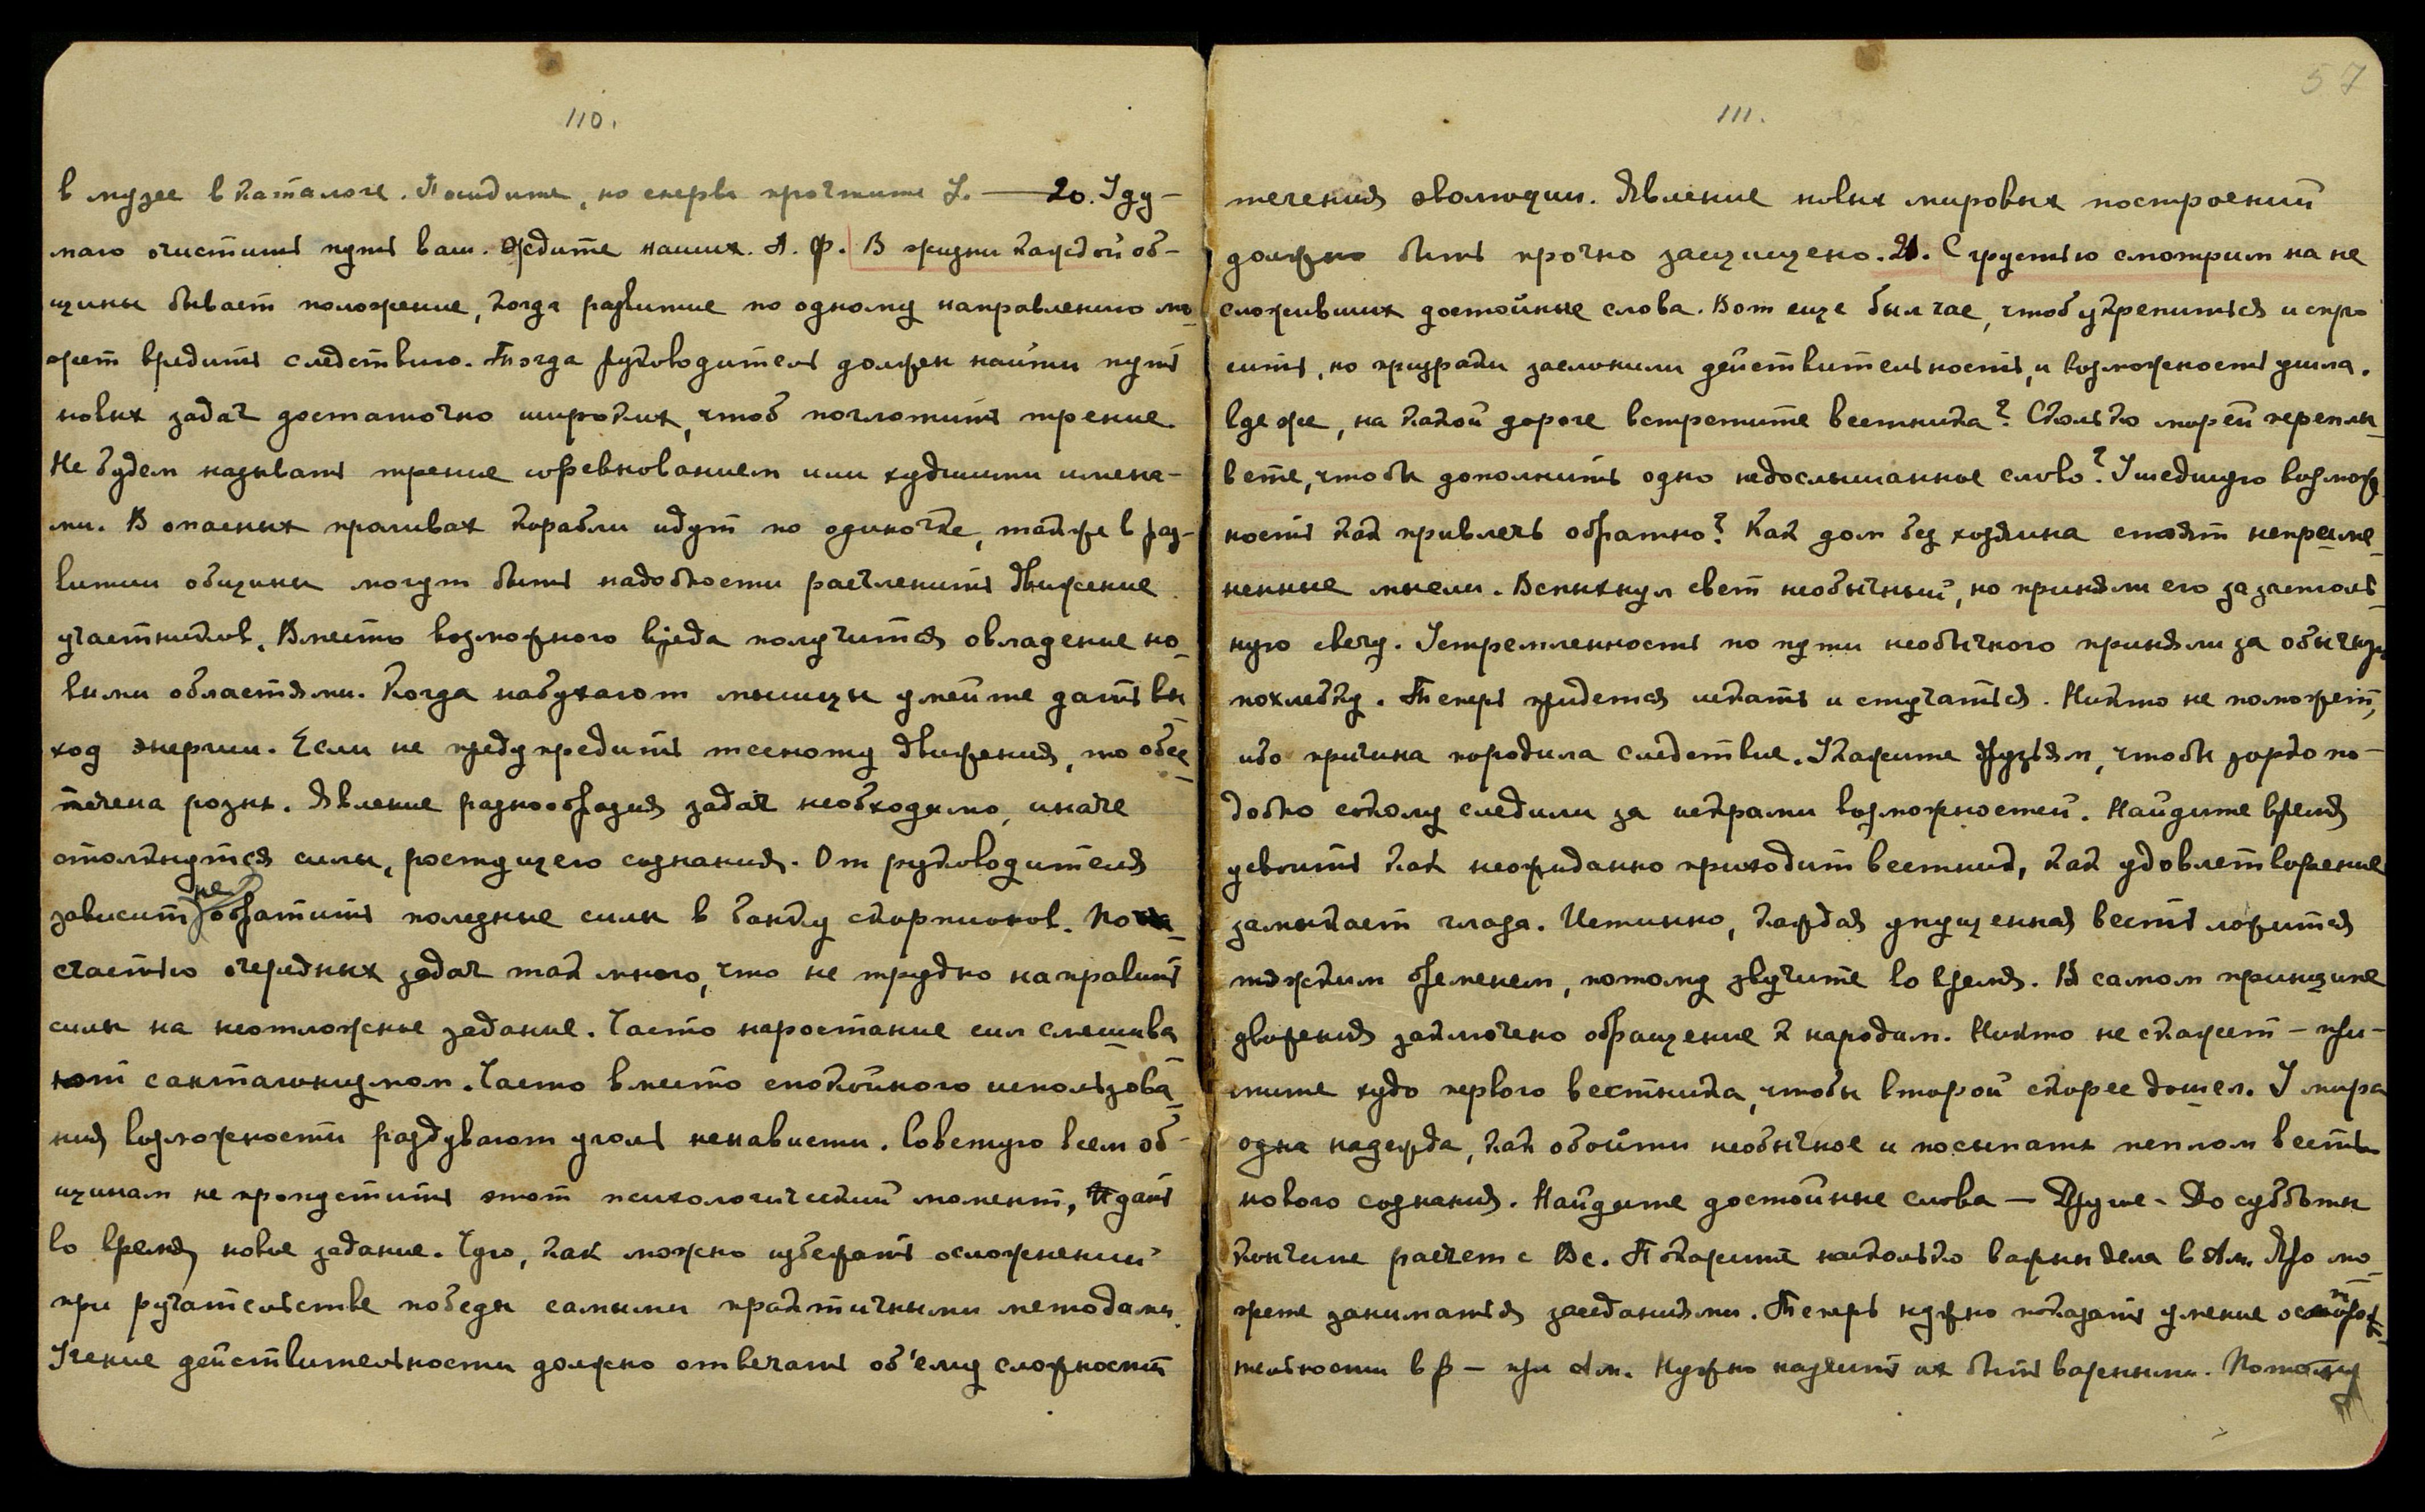 110.
в музее в каталоге. Поидите, но сперва прочтите У. — 20. Уду-
маю очистить путь ваш. Ждите наших. А. Ф. В жизни каждой об-
щины бывает положение, когда развитие по одному направлению мо-
жет вредить следствию. Тогда руководитель должен найти путь
новых задач достаточно широких, чтоб поглотить трение.
Не будем называть трение соревнованием или худшими имена-
ми. В опасных проливах корабли идут по одиночке, также в раз-
витии общины могут быть надобности расчленить движение
участников. Вместо возможного вреда получится овладение но-
выми областями. Когда набухают мышцы умейте дать вы
ход энергии. Если не предупредить тесноту движения, то обес
печена рознь. Явление разнообразия задач необходимо, иначе
столкнутся силы, ростущего сознания. От руководителя
зависит не обратить полезные силы в банку скорпионов. По
счастью очередных задач так много, что не трудно направить
силы на неотложные задание. Часто наростание сил смешива
ют с антагонизмом. Часто вместо спокойного использова
ния возможности раздувают уголь ненависти. Советую всем об-
щинам не пропустить этот психологический момент, и дать
во время новые задание. Чую, как можно избежать осложнений
при ручательстве победы самыми практичными методами.
Учение действительности должно отвечать об'ему сложности
57
111.
течения эволюции. Явление новых мировых построений
должно быть прочно защищено. 21. С грустью смотрим на не
сложивших достойные слова. Вот еще был час, чтоб укрепиться и спро
сить, но призраки заслонили действительность, и возможность ушла.
Где же, на какой дороге встретите вестника? Сколько морей переплы-
вете, чтобы дополнить одно недослышанное слово? Ушедшую возмож
ность как привлечь обратно? Как дом без хозяина стоят неприме-
ненные мысли. Вспыхнул свет необычный, но приняли его за застоль-
ную свечу. Устремленность по пути необычного приняли за обычную
похлебку. Теперь придется искать и стучаться. Никто не поможет,
ибо причина породила следствие. Укажите друзьям, чтобы зорко по-
добно соколу следили за искрами возможностей. Найдите время
усвоить как неожиданно приходит вестник, как удовлетворение
замыкает глаза. Истинно, каждая упущенная весть ложится
тяжким бременем, потому звучите во время. В самом принципе
движения заключено обращение к народам. Никто не скажет — при-
мите худо первого вестника, чтобы второй скорее дошел. У мира
одна надежда, как обойти необычное и посыпать пеплом весть
нового сознания. Найдите достойные слова — Друже. До субботы
кончите расчет с Вс. Покажите насколько важны дела в Ам. Яро мо-
жете заниматься заседаниями. Теперь нужно показать умение осмотри-
тельности в Р — при Ам. Нужно научить их быть важными. Потому